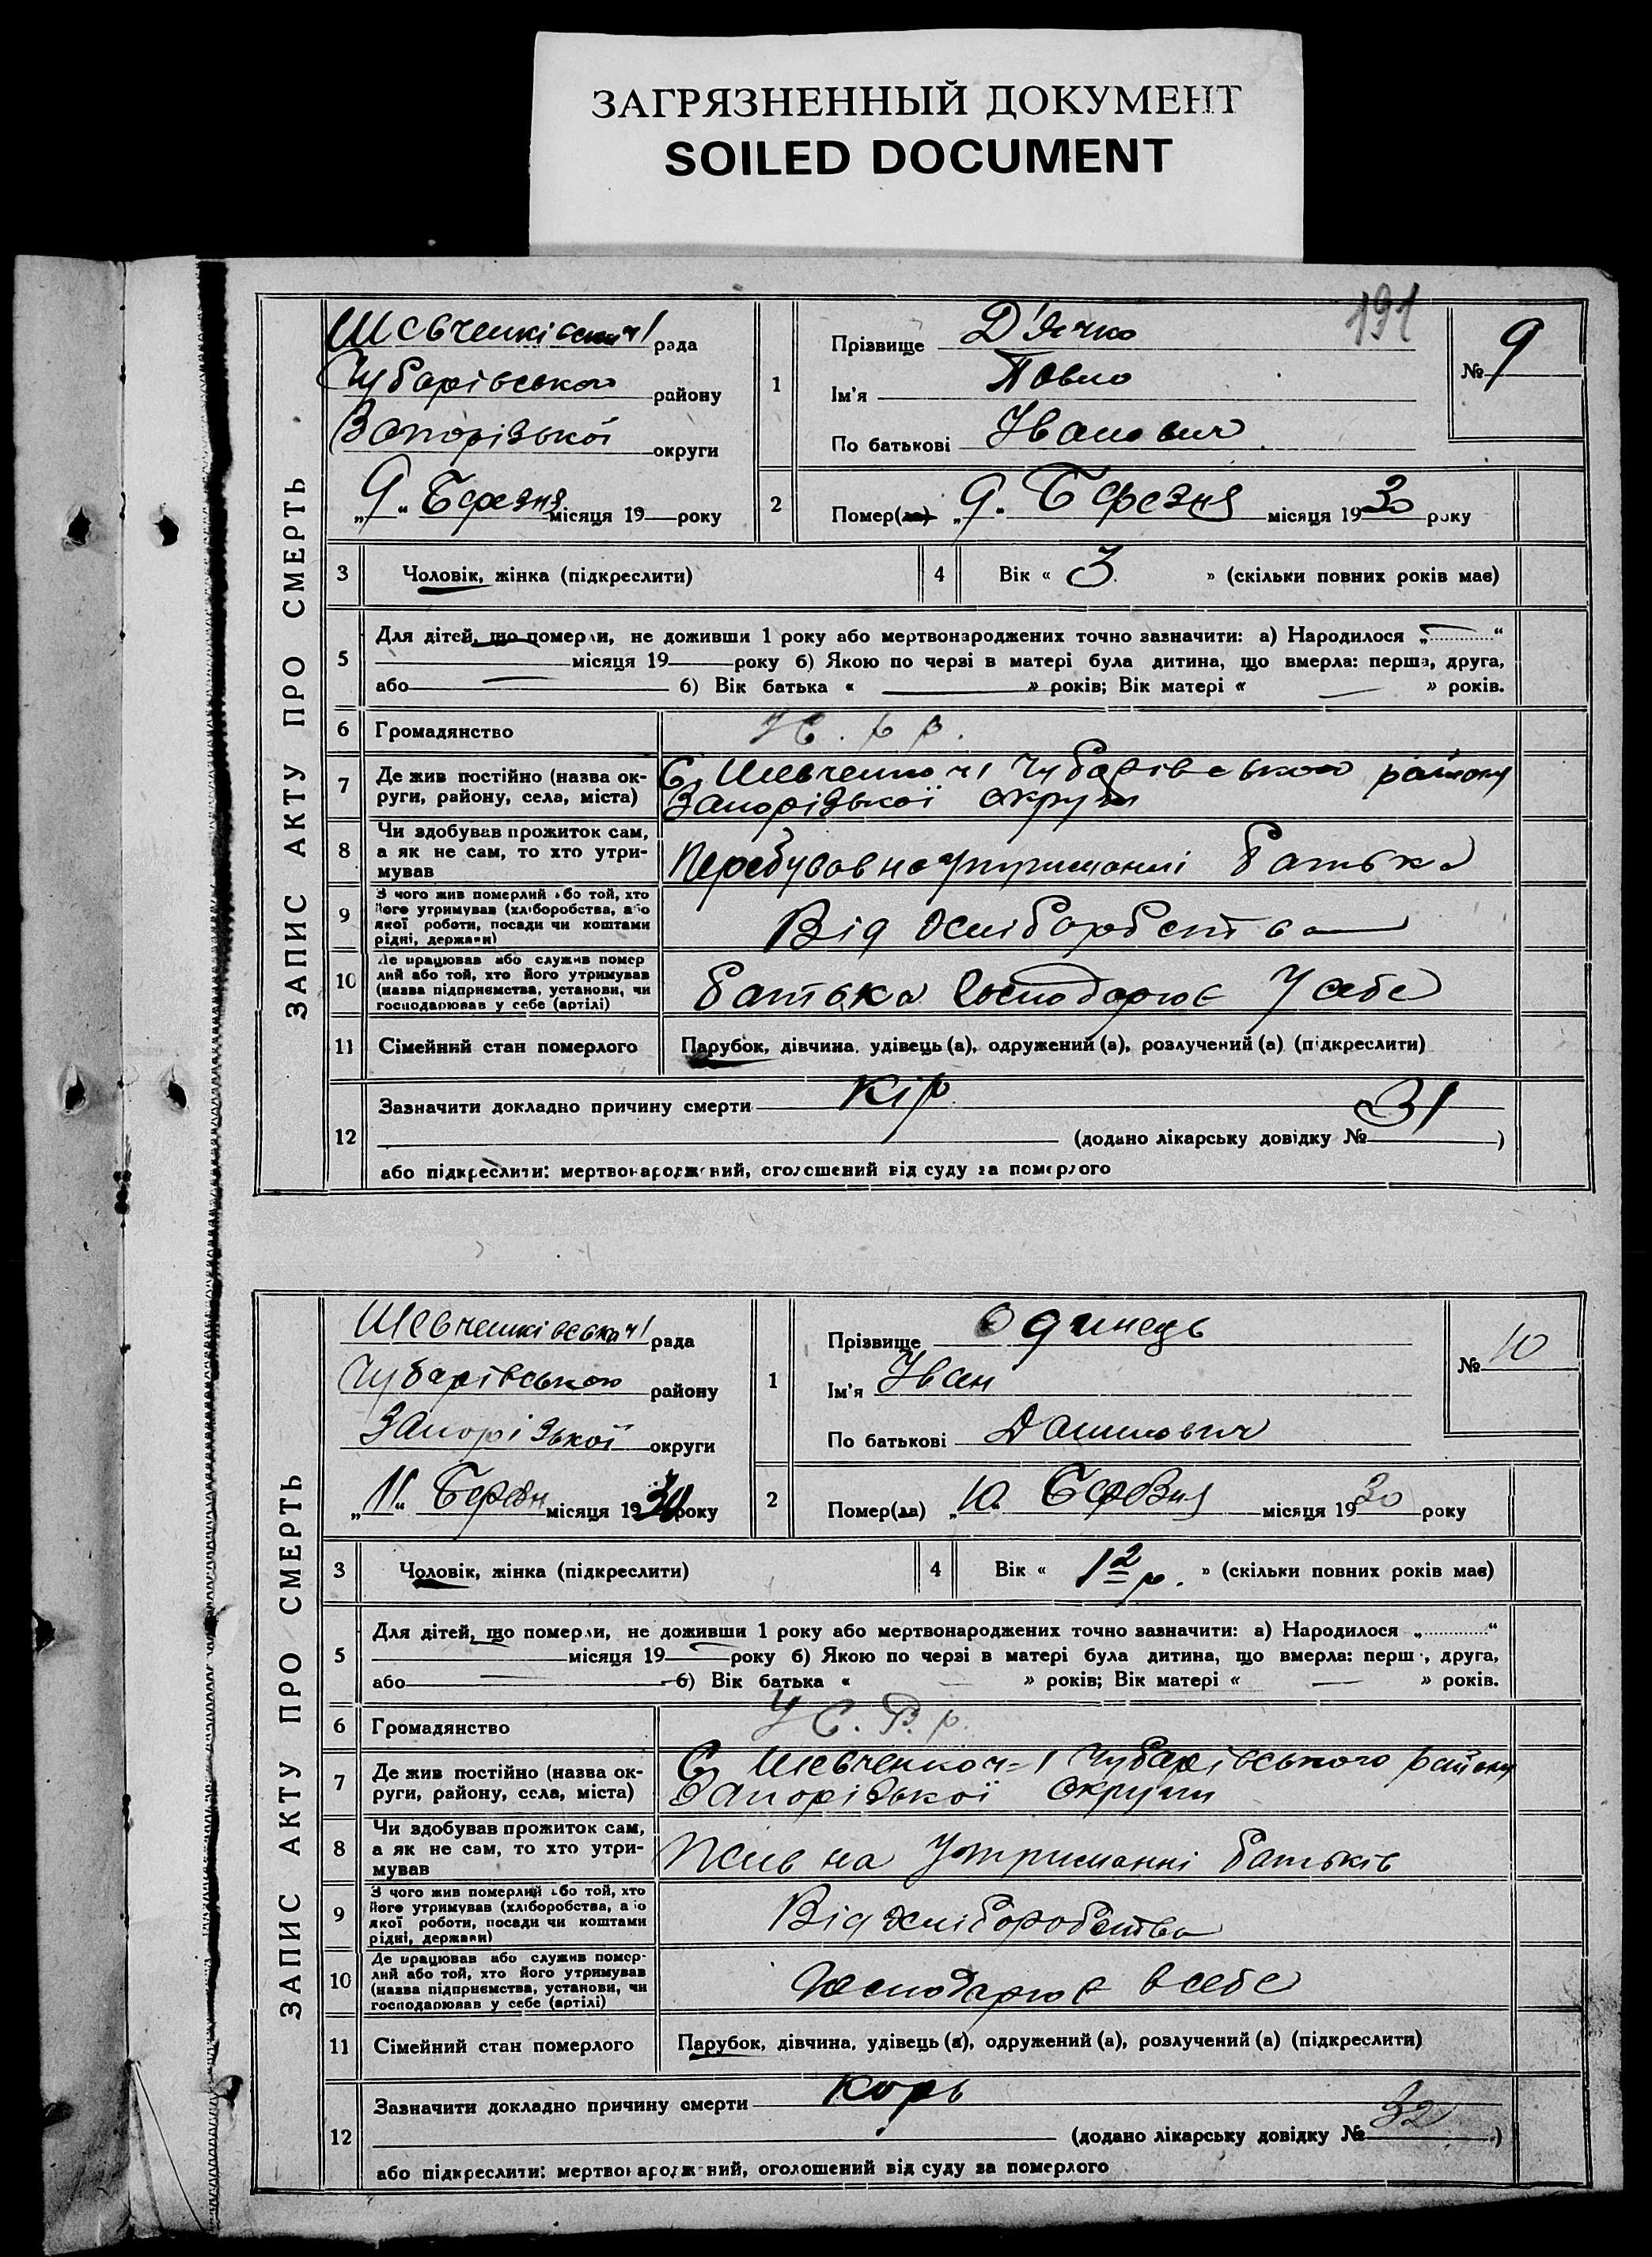 ЗАГРЯЗНЕННЫЙ ДОКУМЕНТ
SOILED DOCUMENT
191
ЗАПИС АКТУ ПРО СМЕРТЬ
Шевченківська ч1 рада
Чубарівського району
Запорізької округи
„9“ Березня місяця 19 року
1
Прізвище Д'ячко
Ім'я Павло
По батькові Іванович
№ 9
2
Помер(ла) „9“ Березня місяця 1930 року
3 Чоловік, жінка (підкреслити)
4 Вік « 3 » (скільки повних років має)
5 Для дітей, що померли, не доживши 1 року або мертвонароджених точно зазначити: а) Народилося „ “
місяця 19 року б) Якою по черзі в матері була дитина, що вмерла: перша, друга,
або б) Вік батька « » років; Вік матері « » років.
6 Громадянство
7 Де жив постійно (назва ок-
руги, району, села, міста)
С. Шевченко ч1 Чубарівського району
Запорізької округи
8 Чи здобував прожиток сам,
а як не сам, то хто утри-
мував
Перебував на утриманні батька
9 З чого жив померлий або той, хто
його утримував (хліборобства, або
якої роботи, посади чи коштами
рідні, держави)
Від хліборобства
10 Де працював або служив помер
лий або той, хто його утримував
(назва підприємства, установи, чи
господарював у себе (артілі)
батька господарює У себе
11 Сімейний стан померлого Парубок, дівчина, удівець (а), одружений (а), розлучений (а) (підкреслити)
12 Зазначити докладно причину смерти Кір
(додано лікарську довідку № 31 )
або підкреслити: мертвонароджений, оголошений від суду за померлого
ЗАПИС АКТУ ПРО СМЕРТЬ
Шевченківська ч1 рада
Чубарівського району
Запорізької округи
„11“ Березн місяця 1930 року
1
Прізвище Одинець
Ім'я Іван
По батькові Данилович
№ 10
2
Помер(ла) „10. Березня місяця 1930 року
3 Чоловік, жінка (підкреслити)
4 Вік « 1 2 р. » (скільки повних років має)
5 Для дітей, що померли, не доживши 1 року або мертвонароджених точно зазначити: а) Народилося „ “
місяця 19 року б) Якою по черзі в матері була дитина, що вмерла: перш , друга,
або б) Вік батька « » років; Вік матері « » років.
6 Громадянство У С. Р. р.
7 Де жив постійно (назва ок-
руги, району, села, міста)
С. Шевченко ч-1 Чубарівського району
Запорізької округи
8 Чи здобував прожиток сам,
а як не сам, то хто утри-
мував
Жив на Утриманні батьків
9 З чого жив померлий або той, хто
його утримував (хліборобства, або
якої роботи, посади чи коштами
рідні, держави)
Від хліборобства
10 Де працював або служив помер-
лий або той, хто його утримував
(назва підприємства, установи, чи
господарював у себе (артілі)
Господарює в себе
11 Сімейний стан померлого Парубок, дівчина, удівець (а), одружений (а), розлучений (а) (підкреслити)
12 Зазначити докладно причину смерти Корь
(додано лікарську довідку № 32 )
або підкреслити: мертвонароджений, оголошений від суду за померлого